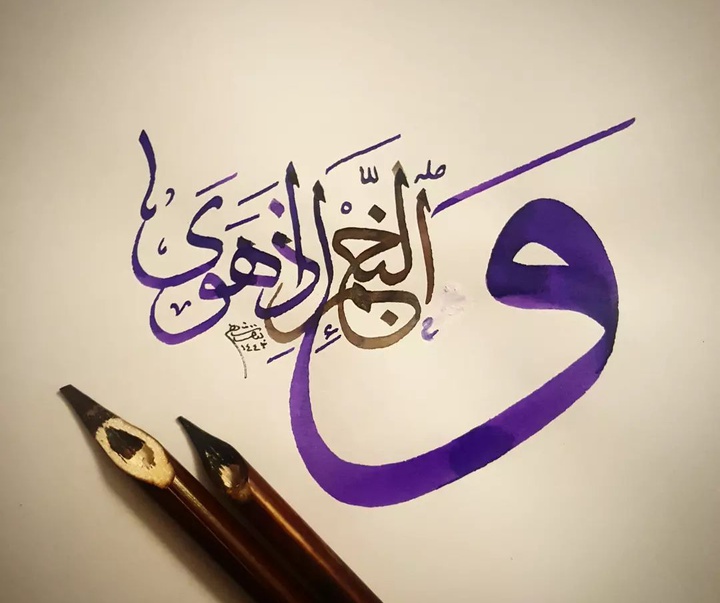 وَٱلنَّجْمِ إِذَا هَوَىٰ
١٤٤٢